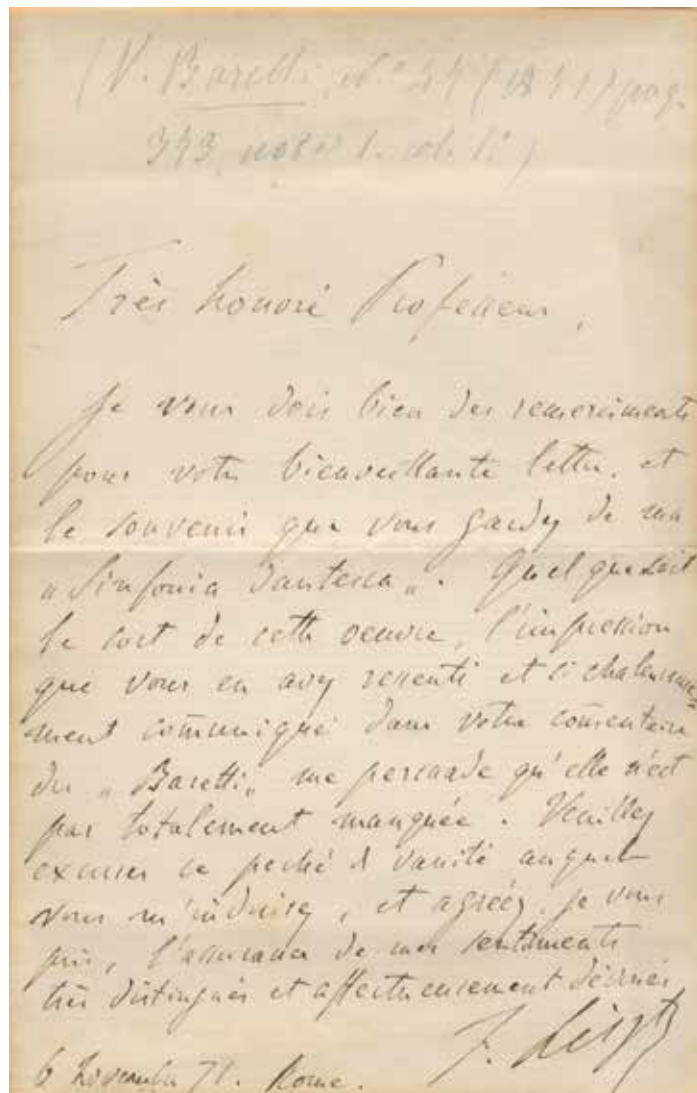 (V. Baretti, N.° 44 (1871) pag.
343, nota 1. col. 1.ª)
Très honoré Professeur,
Je vous dois bien des remerciments
pour votre bienveillante lettre, et
le souvenir que vous gardez de ma
„Sinfonia dantesca„. Quel que soit
le sort de cette oeuvre, l'impression
que vous en avez ressenti et si chaleureuse=
ment communiqué dans votre comentaire
du „Baretti„ me persuade qu'elle n'est
pas totalement manquée. Veuillez
excuser ce peché de vanité auquel
vous m'induisez, et agréez, je vous
prie, l'assurance de mes sentiments
très distingués et affectueusement dévoués
F. Liszt
6 Novembre 71. Rome.